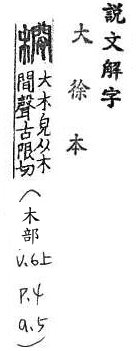 説文解字
大徐本
橌
大木皃从木
閒聲古限切
(木部
v.6上
p.4
a.5)